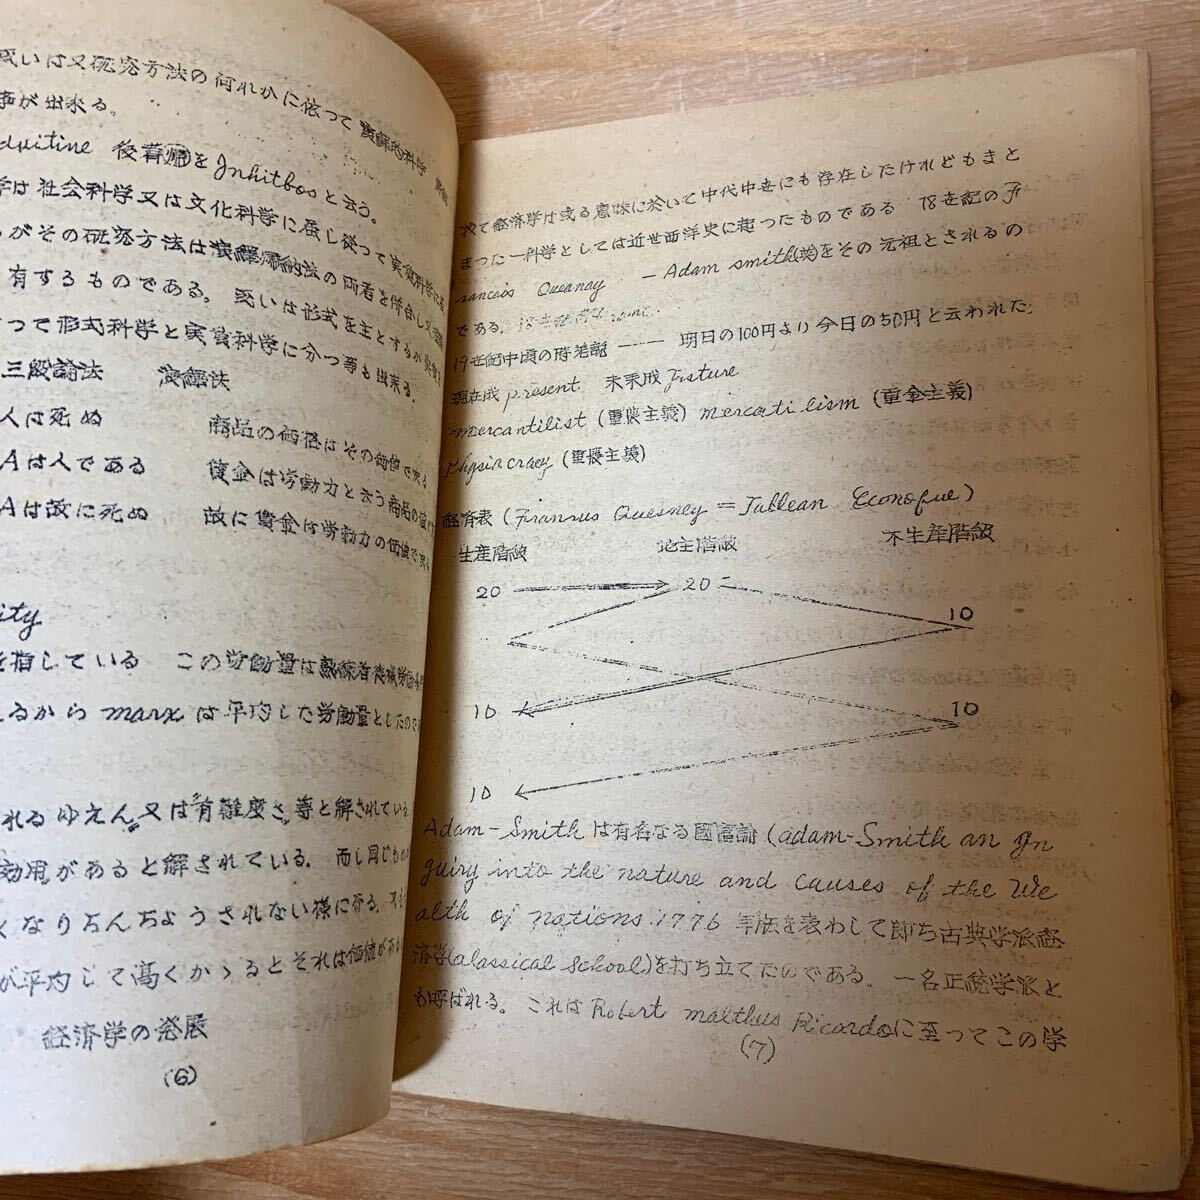 或いは又研究方法の何れかに依って 演繹的科学
事が出来る。
後者 を Inhitbos と云う。
学は社会科学又は文化科学に属し従って実質科学に属
がその研究方法は 法の両者を併合し又
有するものである。或いは形式を主とするか実質を
って形式科学と実質科学に分つ事も出来る。
三段論法 演繹法
人は死ぬ 商品の価格はその価値で来る
Aは人である 賃金は労動力と云う商品の
Aは故に死ぬ 故に賃金は労動力の価値で来る
ity
を指している この労動量は
るから marx は平均した労動量としたので
れるゆえん又は"有難度さ"等と解されている。
効用があると解されている。而し同じ
くなりちんちょうされない様になる。
が平均して高くかゝるとそれは価値がある
経済学の発展
(6)
て経済学は或る意味に於いて中代中世にも存在したけれどもまと
まった一科学としては近世西洋史に起ったものである 18世紀のF
rancois Quesnay — Adam smith(英)をその元祖とされるの
である。
19世紀中頃の時差説 —— 明日の100円より今日の50円と云われた。
現在成 present 未来成 Fisture
mercantilist (重農主義) mercati lism (重金主義)
Physia cracy (重農主義)
経済表 (Fransus Quesney = Tablean Econoque)
生産階級 地主階級 不生産階級
20 20
10
10 10
10
Adam-Smith は有名なる國富論 (adam-Smith an In
guiry into the nature and causes of the We
alth of nations. 1776 年版を表わして即ち古典学派経
済学(alassical school)を打ち立てたのである。一名正統学派と
も呼ばれる。これは Robert malthus Ricardo に至ってこの学
(7)